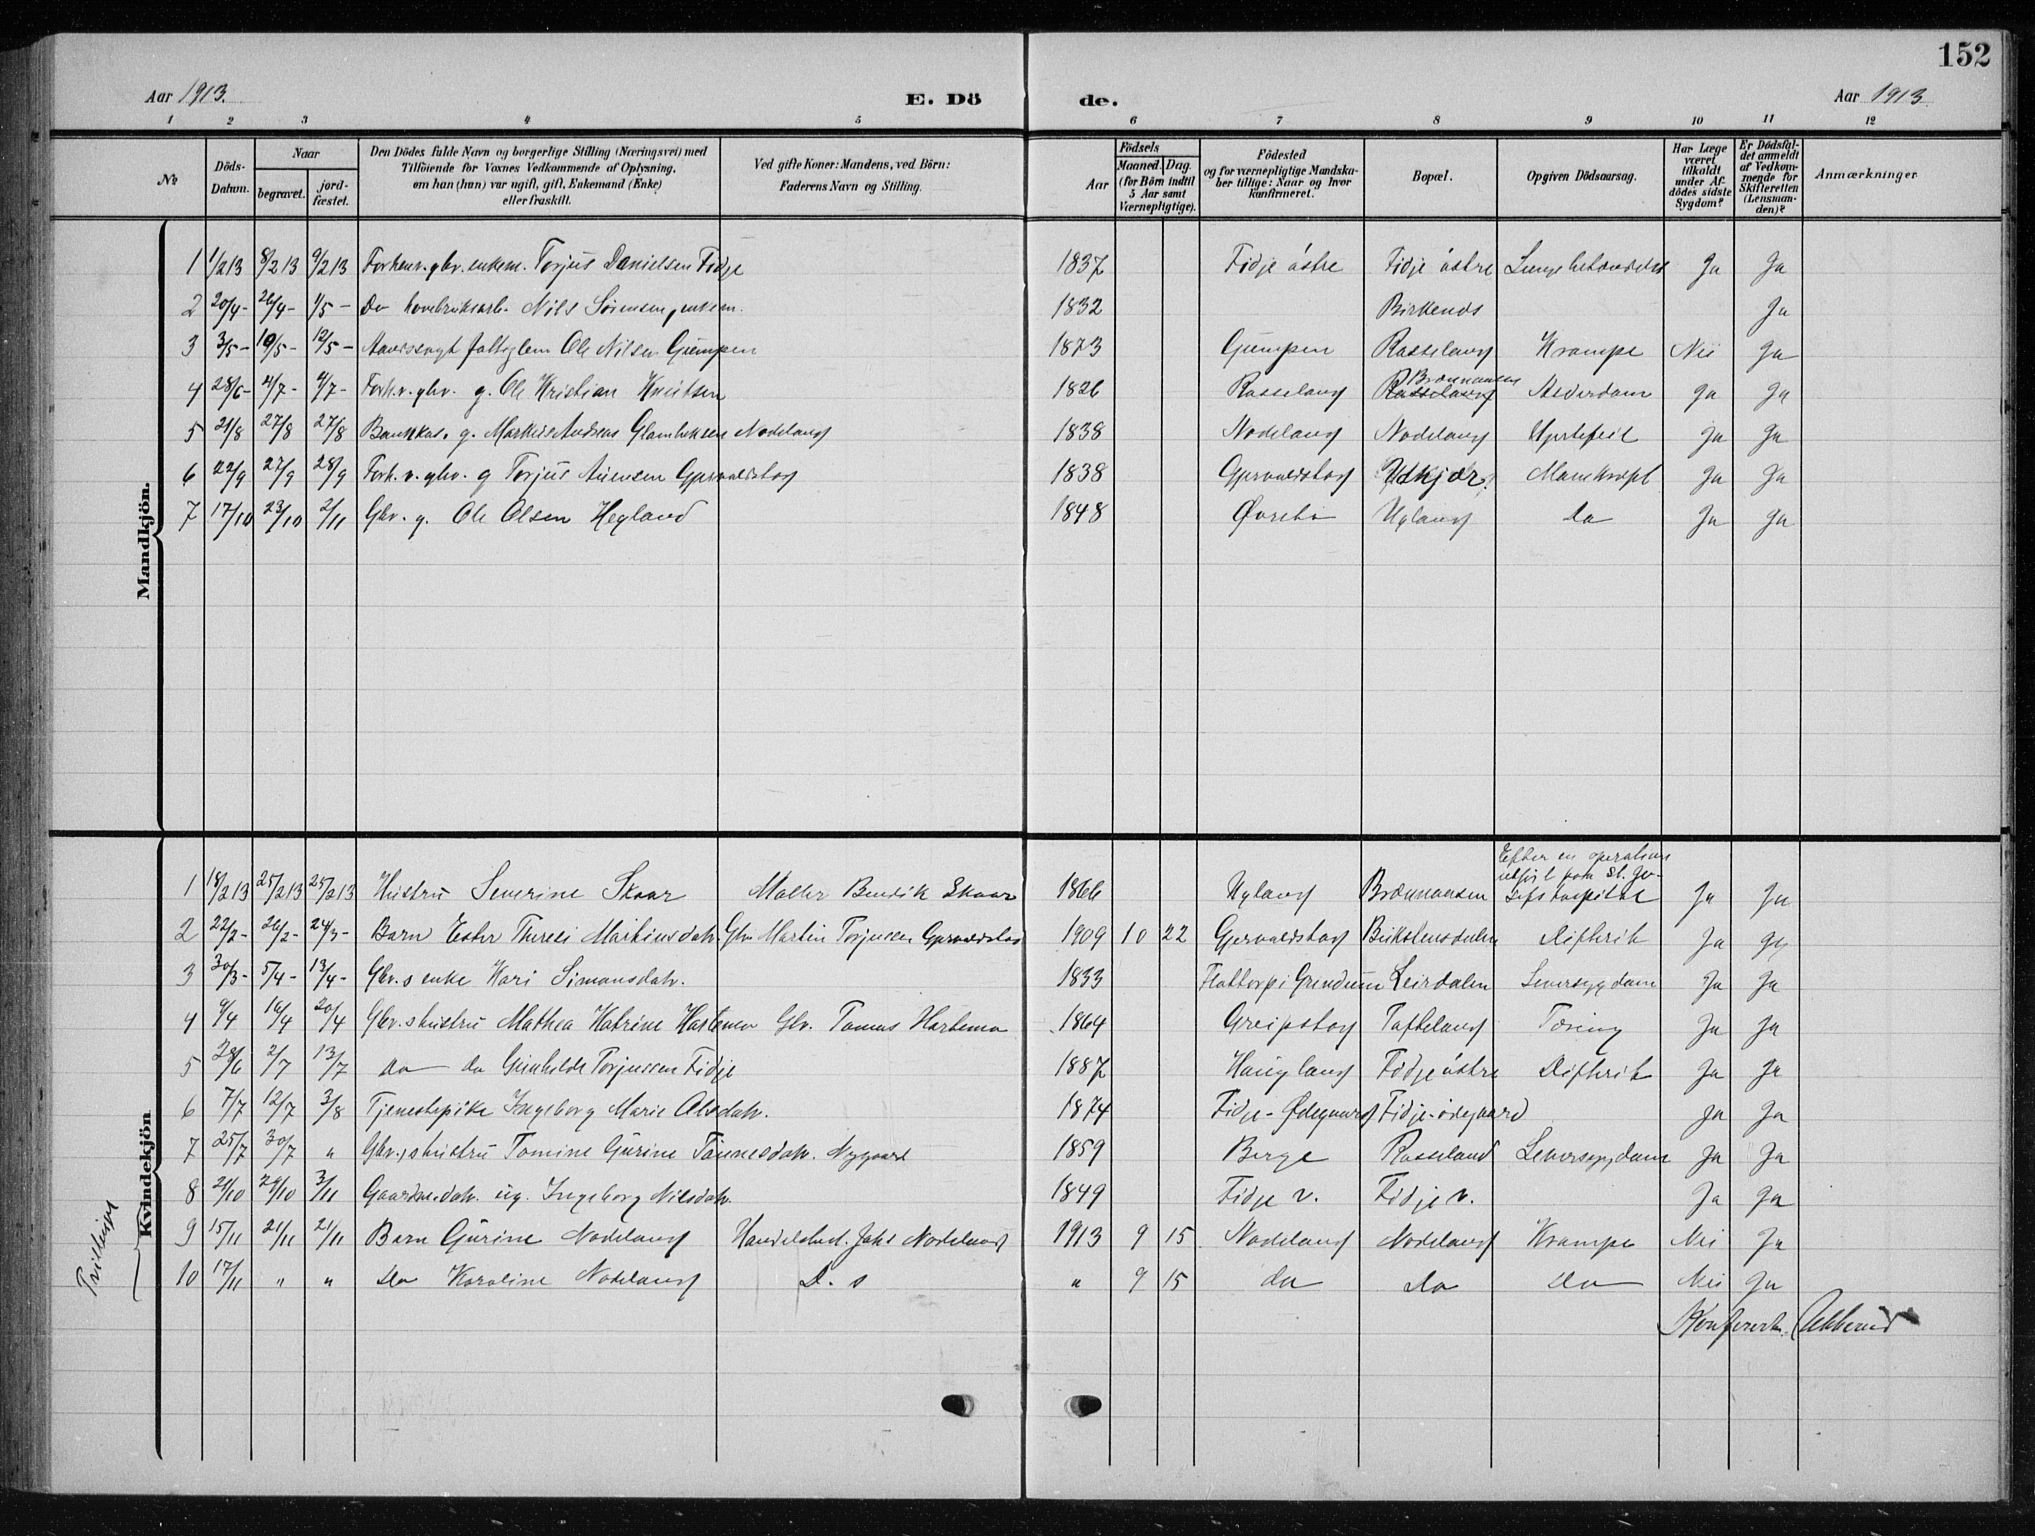 152
Aar 1913. E. Dö de. Aar 1913
1 2 3 4 5 6 7 8 9 10 11 12
No
Döds-Datum.
Naar
begravet.
jordfæstet.
Den Dödes fulde Navn og borgerlige Stilling (Næringsvei) med
Tilföiende for Voxnes Vedkommende af Oplysning,
om han (hun) var ugift, gift, Enkemand (Enke)
eller fraskilt.
Ved gifte Koner: Mandens, ved Börn:
Faderens Navn og Stilling.
Födsels
Aar
Maaned. Dag.
(for Börn indtil
5 Aar samt
Værnepligtige).
Födested
og for værnepligtige Mandskaber tillige: Naar og hvor
konfirmeret.
Bopæl.
Opgiven Dödsaarsag.
Har Læge
været
tilkaldt
under Afdödes sidste
Sygdom?
Er Dödsfaldet anmeldt
af Vedkommende for
Skifteretten
(Lensmanden)?
Anmærkninger
Mandkjön.
1 1/2 13 8/2 13 9/2 13 Forhenv. gbr. enkem. Torjus Danielsen Fidje 1837 Fidje östre Fidje östre Lungebetændelse Ja Ja
2 20/4 - 26/4 - 1/5 - Do Nils Sörensen, enkem. 1832 Birkenes Ja
3 3/5 - 10/5 - 12/5 - Ole Nilsen Gumpen 1873 Gumpen Rosseland Krampe Nei Ja
4 28/6 - 4/7 - 4/7 - Forh.v. gbr. g. Ole Kristian Knutsen 1826 Rosseland Brönnaasen Rosseland Alderdom Ja Ja
5 21/8 27/8 27/8 Bankkas. g. Andreas Nodeland 1838 Nodeland Nodeland Hjertefeil Ja Ja
6 22/9 27/9 28/9 Forh.v. gbr. g Torjus Aanensen Gjervoldstad 1838 Gjervoldstad Udkjær Mavekræft Ja Ja
7 17/10 23/10 2/11 Gbr. g. Ole Olsen Hegland 1848 Øvrebø Ugland Do Ja Ja
Kvindekjön
1 18/2 13 25/2 13 25/2 13 Hustru Severine Skaar Maler Bendik Skaar 1866 Ugland Brönnaasen Efter en operation
udført paa St. Josefshospital Ja Ja
2 22/2 - 26/2 - 24/3 - Barn Ester Therese Martinsdatr. Gbr. Martin Torjussen Gjervoldstad 1909 10 22 Gjervoldstad Difterit Ja Ja
3 30/3 - 5/4 - 13/4 - Gbr.s enke Kari Simonsdatr. 1833 Flottorp i Grindum Leirdalen Leversygdom Ja Ja
4 9/4 16/4 20/4 Gbr.s hustru Mathea Katrine Hortemo Gbr. Tomas Hortemo 1864 Greipstad Tofteland Tæring Ja Ja
5 28/6 2/7 13/7 do do Gunhilde Torjussen Fidje 1887 Haugland Fidje östre Difterit Ja Ja
6 7/7 12/7 3/8 Tjenestepike Ingeborg Marie Olsdatr. 1874 Fidje-Ødegaard Fidje-ödegaard Ja Ja
7 25/7 30/7 " Gbr.s hustru Tomine Gurine Tönnesdatr. Nygaard 1859 Berge Rosseland Leversygdom Ja Ja
8 21/10 29/10 3/11 Gaardm.datr. ug. Ingeborg Nilsdatr. 1849 Fidje v. Fidje v. Ja Ja
Tvillinger
9 15/11 21/11 21/11 Barn Gurine Nodeland Handelsbest. Jahs Nodeland 1913 9 15 Nodeland Nodeland Krampe Nei Ja
10 17/11 " " Do Karoline Nodeland D. s " 9 15 do do do Nei Ja
Konfereret.